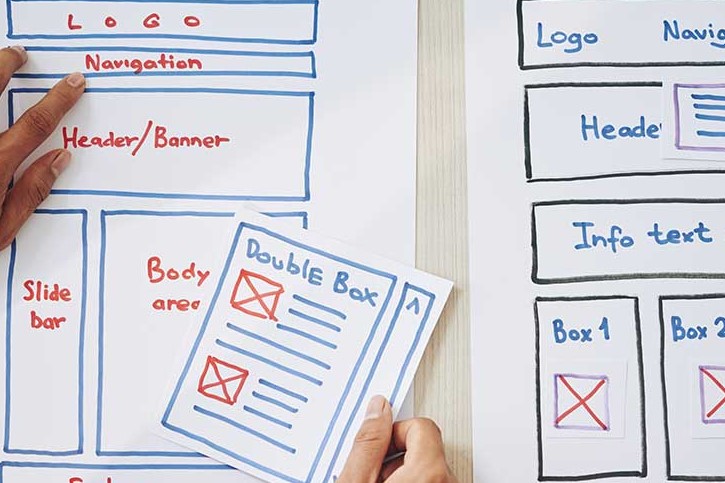 LOGO
Navigation
Header/Banner
Slide
bar
Body
area
Double Box
Logo
Info text
Box 1
Box 2